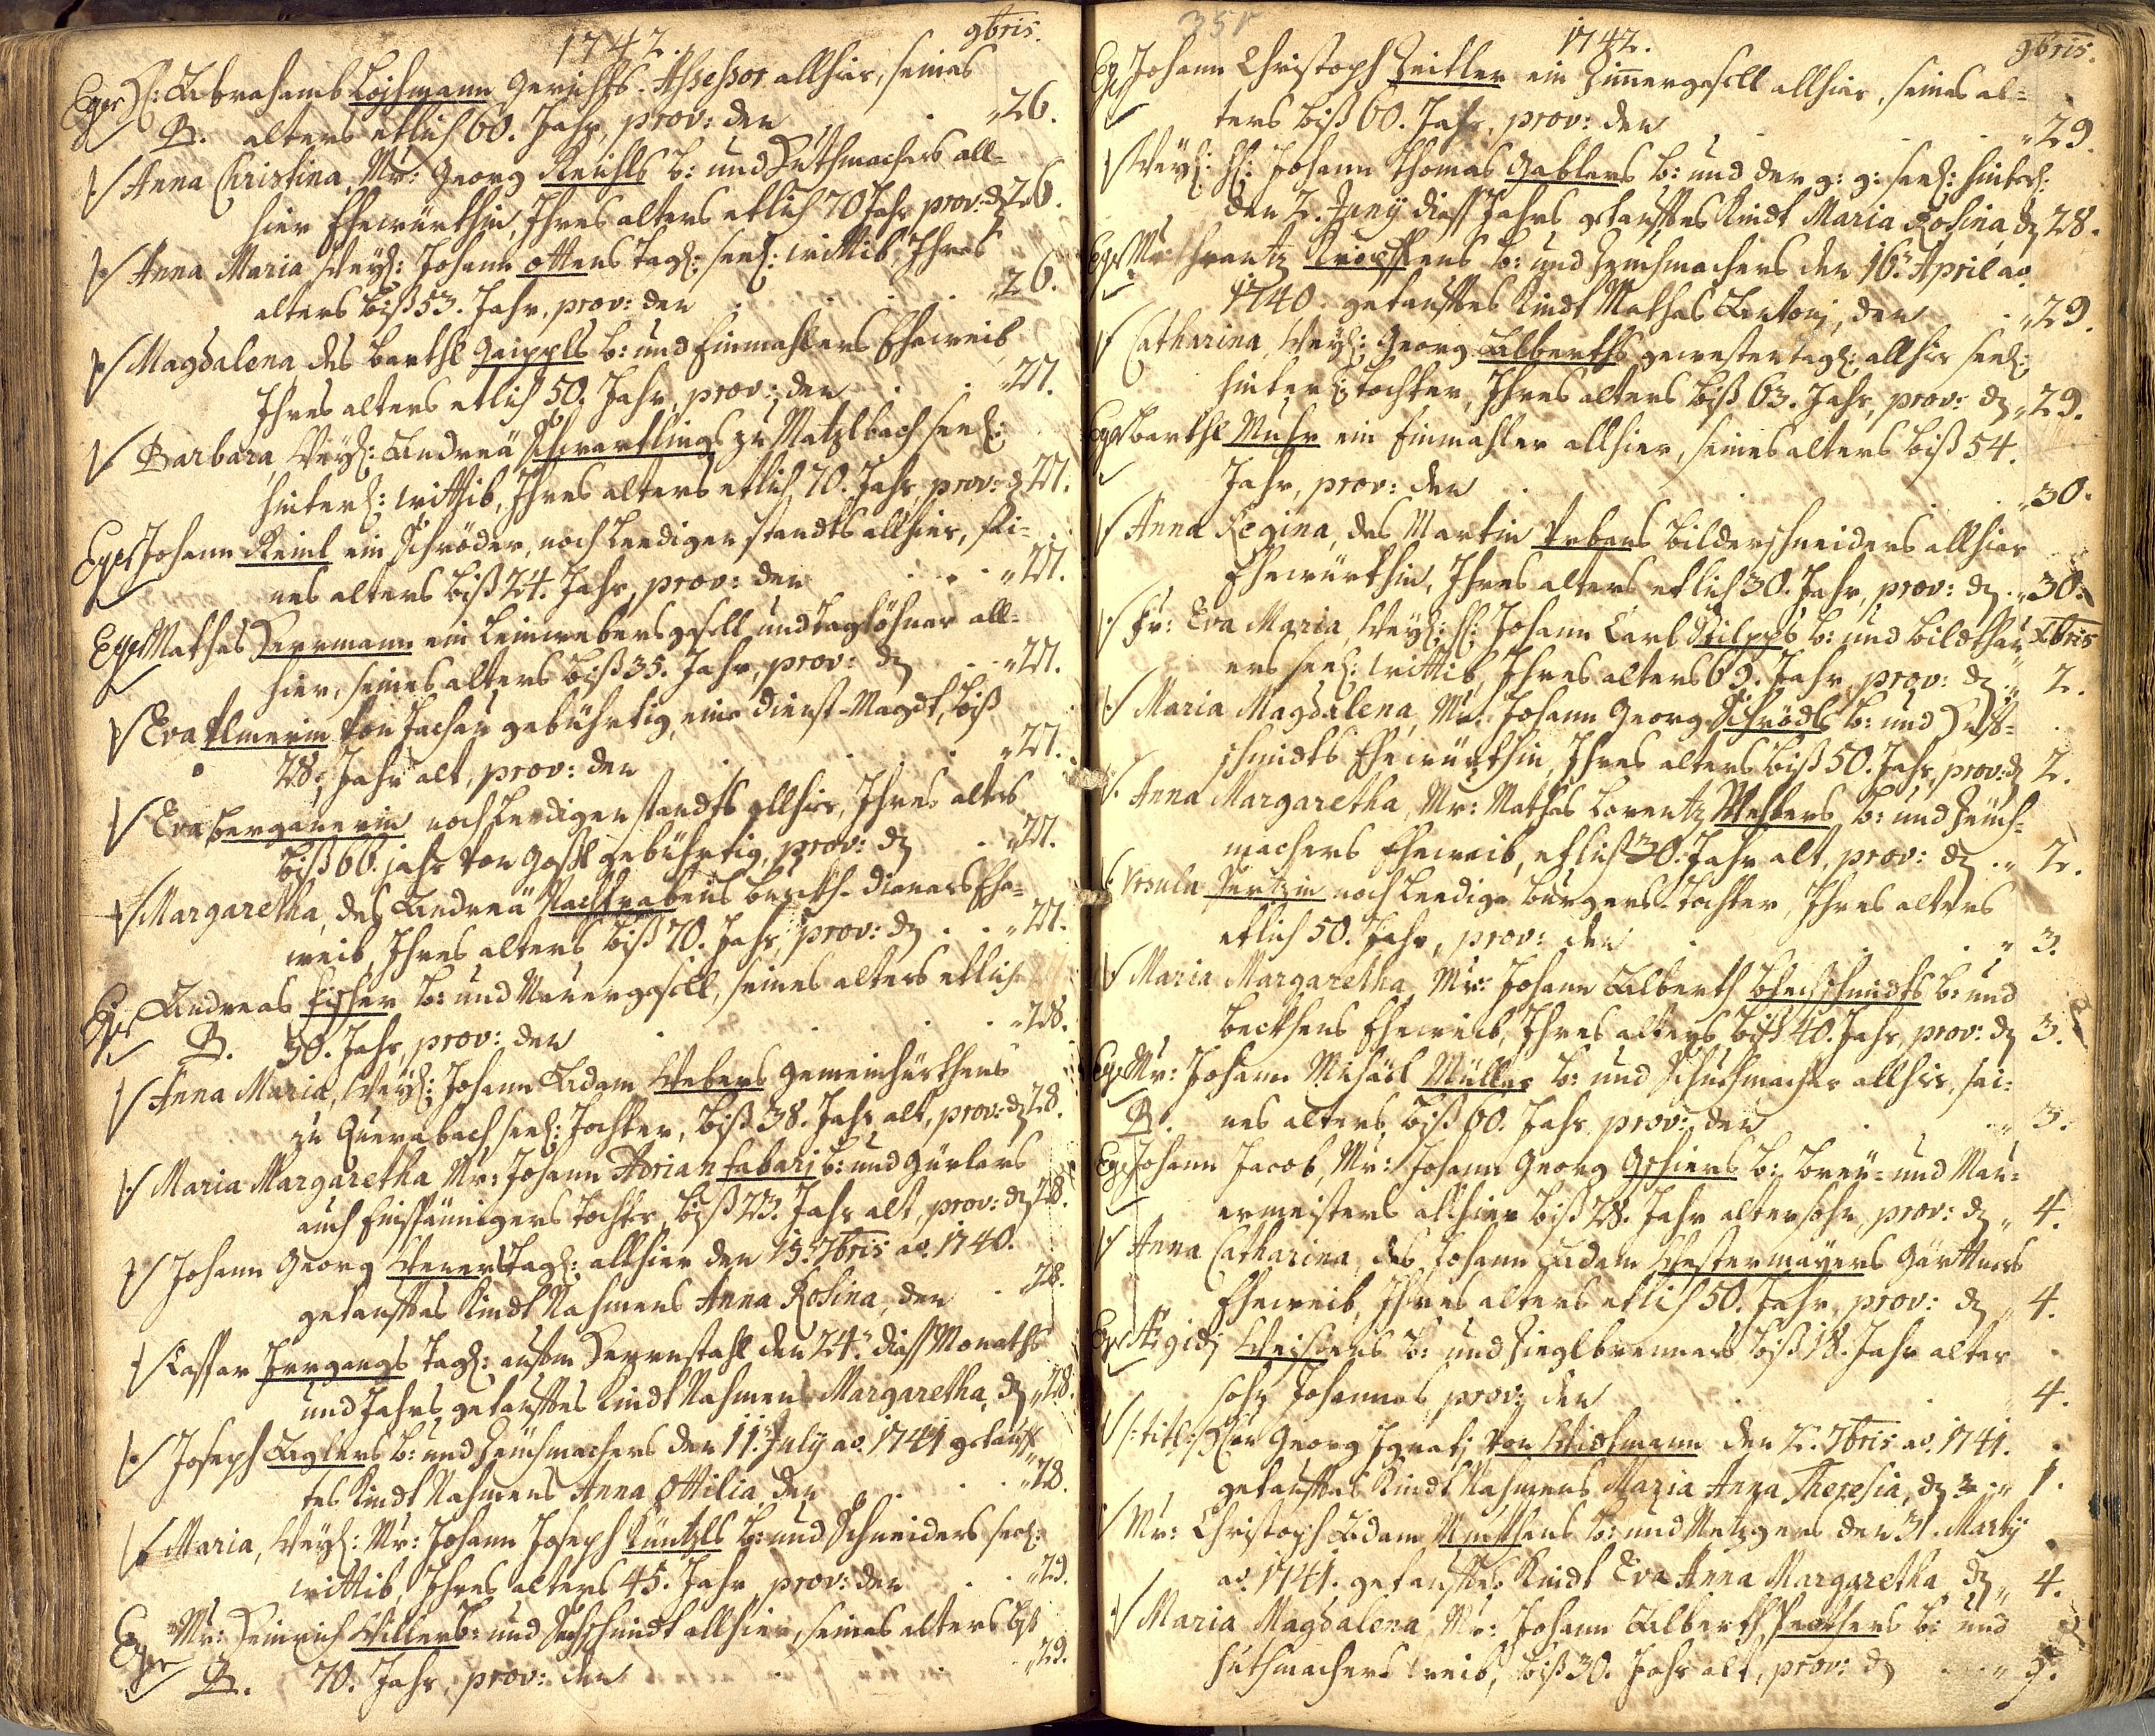 1742. 9bris.
Eger H: Abrahamb Lochmann Gerichts-Assessor allhier, seines
B. alters etlich 60. Jahr, prov: den „26.
Anna Christina, Mr: Georg Reichls b: und Huthmachers all=
hier Ehewürthin, Ihres alters etlich 70 Jahr prov: d 26.
Anna Maria Weyl: Johann Ottens tagl: seel: wittib, Ihres
alters biß 53. Jahr, prov: den „26.
Magdalena des Barthl Gaippls b: und Einmahlers Eheweib
Ihres alters etlich 50. Jahr, prov: den „27.
Barbara, Weyl: Andreä Schwartlings zu Matzlbach seel:
hinterl: wittib, Ihres alters etlich 70. Jahr, prov: d 27.
Eger Johann Reinl ein Schröder, noch leedigen standts allhier, sei=
nes alters biß 24. Jahr, prov: den „27.
Eger Mathes Herrmann ein leinwebersgesell und taglöhner all=
hier, seines alters biß 35. Jahr, prov: d „27.
Eva von Tachau gebührtig, eine dienst-Magdt, biß
28. Jahr alt, prov: den „27.
Eva Berganerin noch leedigen standts allhier, Ihres alters
biß 66. jahr von gebührtig, prov: d „27.
Margaretha, des Andreä dieners Ehe=
weib, Ihres alters biß 70. Jahr, prov: d „27.
Eger Andreas Fischer b: und Maurergesell, seines alters etlich
B. 30. Jahr, prov: den „28.
Anna Maria, Weyl: Johann Adam Webers gemeinhürthens
zu Querabach seel: Tochter, biß 38. Jahr alt, prov: d 28.
Maria Margaretha Mr: Johann Adrian Fabarj b: und Gürtlers
auch Einspännigers tochter, biß 23. Jahr alt, prov: d 28.
Johann Georg tagl: allhier den 15. 7bris ao. 1740.
getaufftes Kindt Nahmens Anna Rosina, den 28.
Caspar Irrgangs tagl: Herrnstahl den 24. diess Monaths
und Jahrs getaufftes Kindt Nahmens Margaretha, d „28.
Joseph Aglers b: und Zeuchmachers den 11. July ao. 1741 getauff=
tes Kindt Nahmens Anna Ottilia, den „28.
Maria, Weyl: Mr: Johann Joseph Küntzls b: und Schneiders seel:
wittib, Ihres alters 45. Jahr, prov: den „29.
Eger Mr: Heinrich Willer b: und allhier, seines alters biß
B. 70. Jahr, prov: den „29.
35r 1742. 9bris.
Eger Johann Christoph Zeitler ein Zimergesell allhier, seines al=
ters biß 60. Jahr, prov: den „29.
Weyl: H: Johann Thomas Gablers b: und der g: g: seel: hinterl:
den 2. Juny diess Jahrs getaufftes Kindt Maria Rosina d 28.
Eger Mr: Frantz b: und Zeuchmachers den 16. April ao.
1740. getaufftes Kindt Mathes Antonj, den „29.
Catharina, Weyl: Georg Alberths gewester tagl: allhier seel:
hinterl: tochter, Ihres alters biß 63. Jahr, prov: d „29.
Eger Barthl Muhr ein Einmahler allhier, seines alters biß 54.
Jahr, prov: den „30.
Anna Regina, des Martin Urbans Bilderschneiders allhier
Ehewürthin, Ihres alters etlich 30. Jahr, prov: d „30.
Fr: Eva Maria, Weyl: H: Johann Carl Stilpps b: und bildthau Xbris
ers seel: wittib, Ihres alters 69. Jahr prov: d „2.
Maria Magdalena, Mr: Johann Georg Schrödls b: und Huff=
schmidts Ehewürthin, Ihres alters biß 50. Jahr, prov: d 2.
Anna Margaretha, Mr: Mathes Lorentz Webers b: und Zeuch=
machers Eheweib, etlich 30. Jahr alt, prov: d „2.
Ursula noch leedige burgers-tochter, Ihres alters
etlich 50. Jahr, prov: den „3.
Maria Margaretha, Mr: Johann Alberth Blechschmidts b: und
beckhens Eheweib, Ihres alters biß 40. Jahr, prov: d 3.
Eger Mr: Johann Michäel Müller b: und Schuchmacher allhier, sei=
B. nes alters biß 60. Jahr prov: den „3.
Eger Johann Jacob, Mr: Johann Georg Gschiers b: breu= und Mau=
ermeisters allhier biß 28. Jahr alter sohn, prov: d „4.
Anna Catharina, des Johann Adam Westermayers Gärttners
Eheweib, Ihres alters etlich 50. Jahr, prov: d „4.
Eger Ægidj b: und Zieglbrenners biß 18. Jahr alter
sohn Johannes prov: den „4.
/: titl: / Herrn Georg Ignatj von Widtmann den 2. 7bris ao. 1741.
getaufftes Kindt Nahmens Maria Anna Theresia, d „1.
Mr: Christoph Adam b: und Metzgers den 31. Marty
ao. 1741. getaufftes Kindt Eva Anna Margaretha d „4.
Maria Magdalena Mr: Johann Alberth b: und
huthmachers weib, biß 30. Jahr alt, prov: d „5.